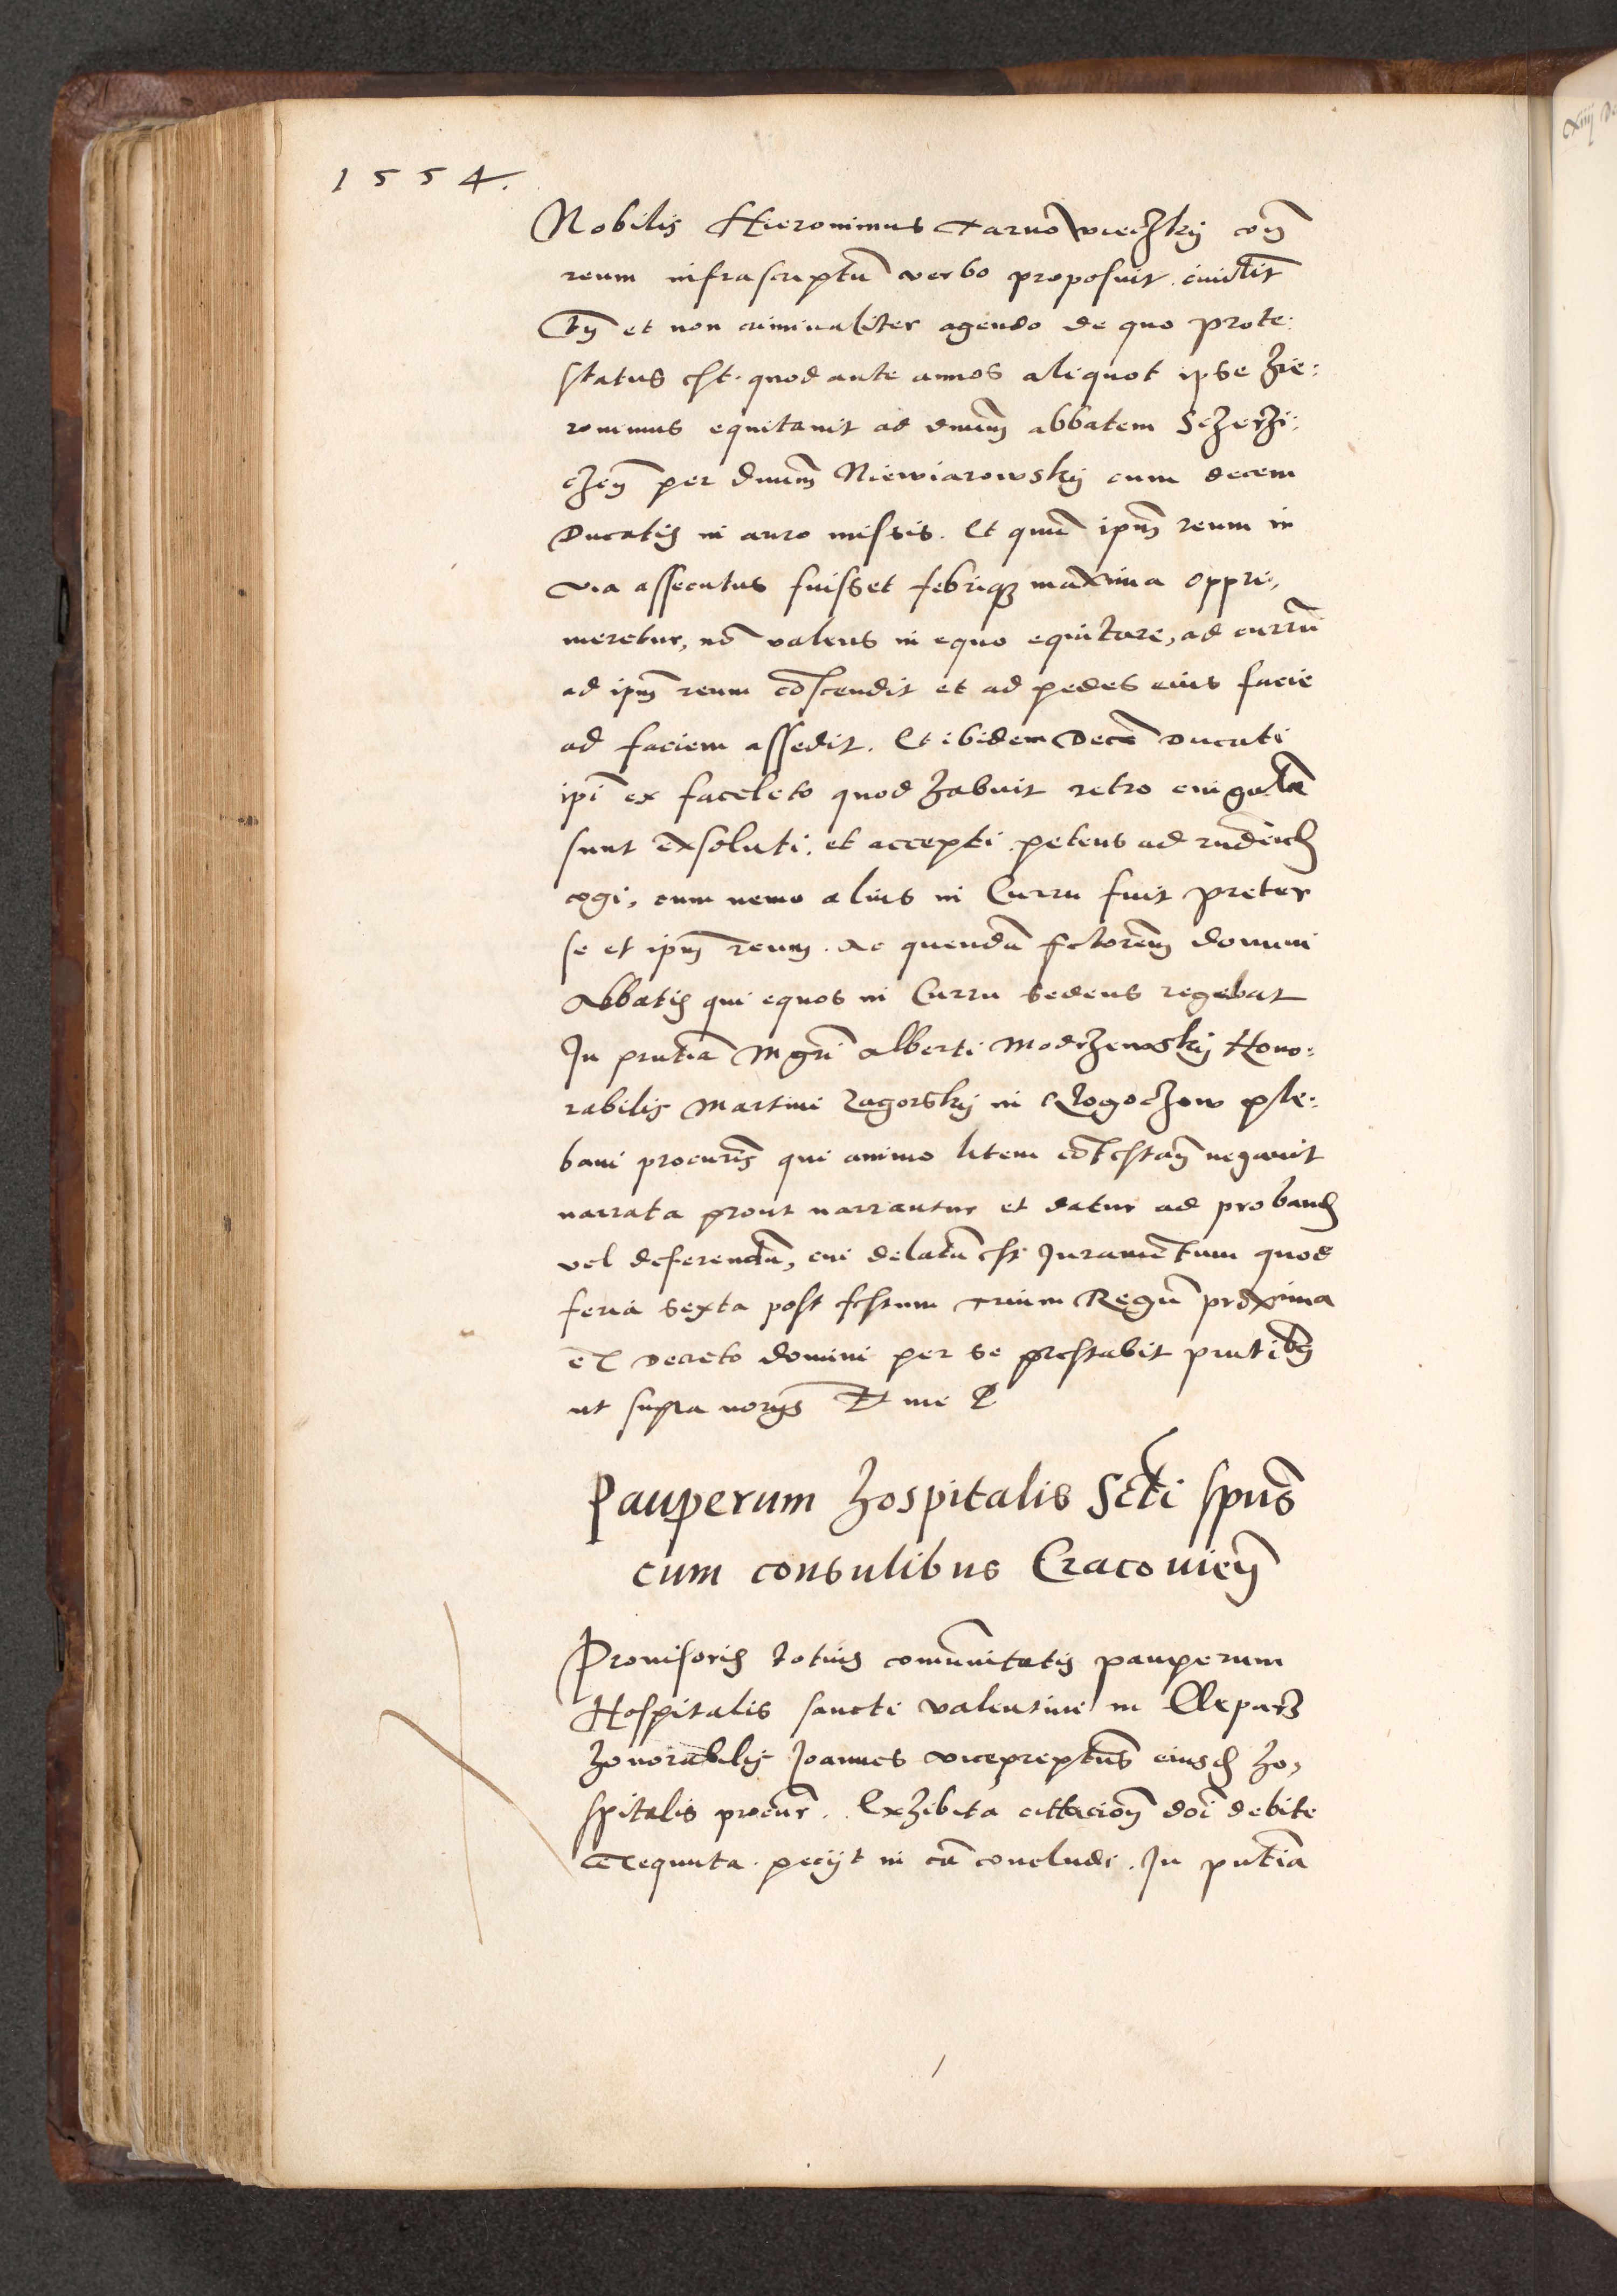 1554.
Nobilis Hieronimus Tarnowieczkÿ con̄
reum infrascriptū verbo proposuit. ciuil̄it
tn̄ et non criminaliter agendo de quo prote:
status est. quod ante annos aliquot ipse Hie:
ronimus equitauit ad dnum̄ abbatem Sczerzi:
czen̄ per dnum̄ Niewiarowskÿ cum decem
Ducatis in auro missis. Et qum̄ ipm̄ reum in
via assecutus fuisset febriq; maxima oppri,
meretur, nō valens in equo equitare, ad currū
ad ipm̄ reum cōscendit et ad pedes eius facie
ad faciem assedit. Et ibidem Decē Ducati
ipī ex faceleto quod habuit retro
sunt exsoluti. et accepti. petens ad
cogi, cum nemo alius in Curru fuit preter
se et ipm̄ reum. Ac quendā domini
Abbatis qui equos in Curru sedens regebat
In pn̄tia Mgrī Alberti Modrzewskÿ Hono:
rabilis Martini Zagorskÿ in Rogoczow ple:
bani procuris̄ qui animo litem cōtestan̄ negauit
narrata prout narrantur et datur ad proband
vel deferendū, cui delatū est Juramētum quod
feria sexta post festum trium Regū proxima
ex Decreto domini per se prestabit pn̄tibus
ut supra et me
Pauperum Hospitalis Scti spūs
cum consulibus Cracouien̄
Prouisoris totius comūnitatis pauperum
Hospitalis sancti Valentini in Clepar̄
Honorabilis Joannes viceprep̄tus eiusd Ho,
spitalis procur̄. Exhibita cittacion̄ doī debite
exequuta. pecÿt in cā concludi. In pn̄tia